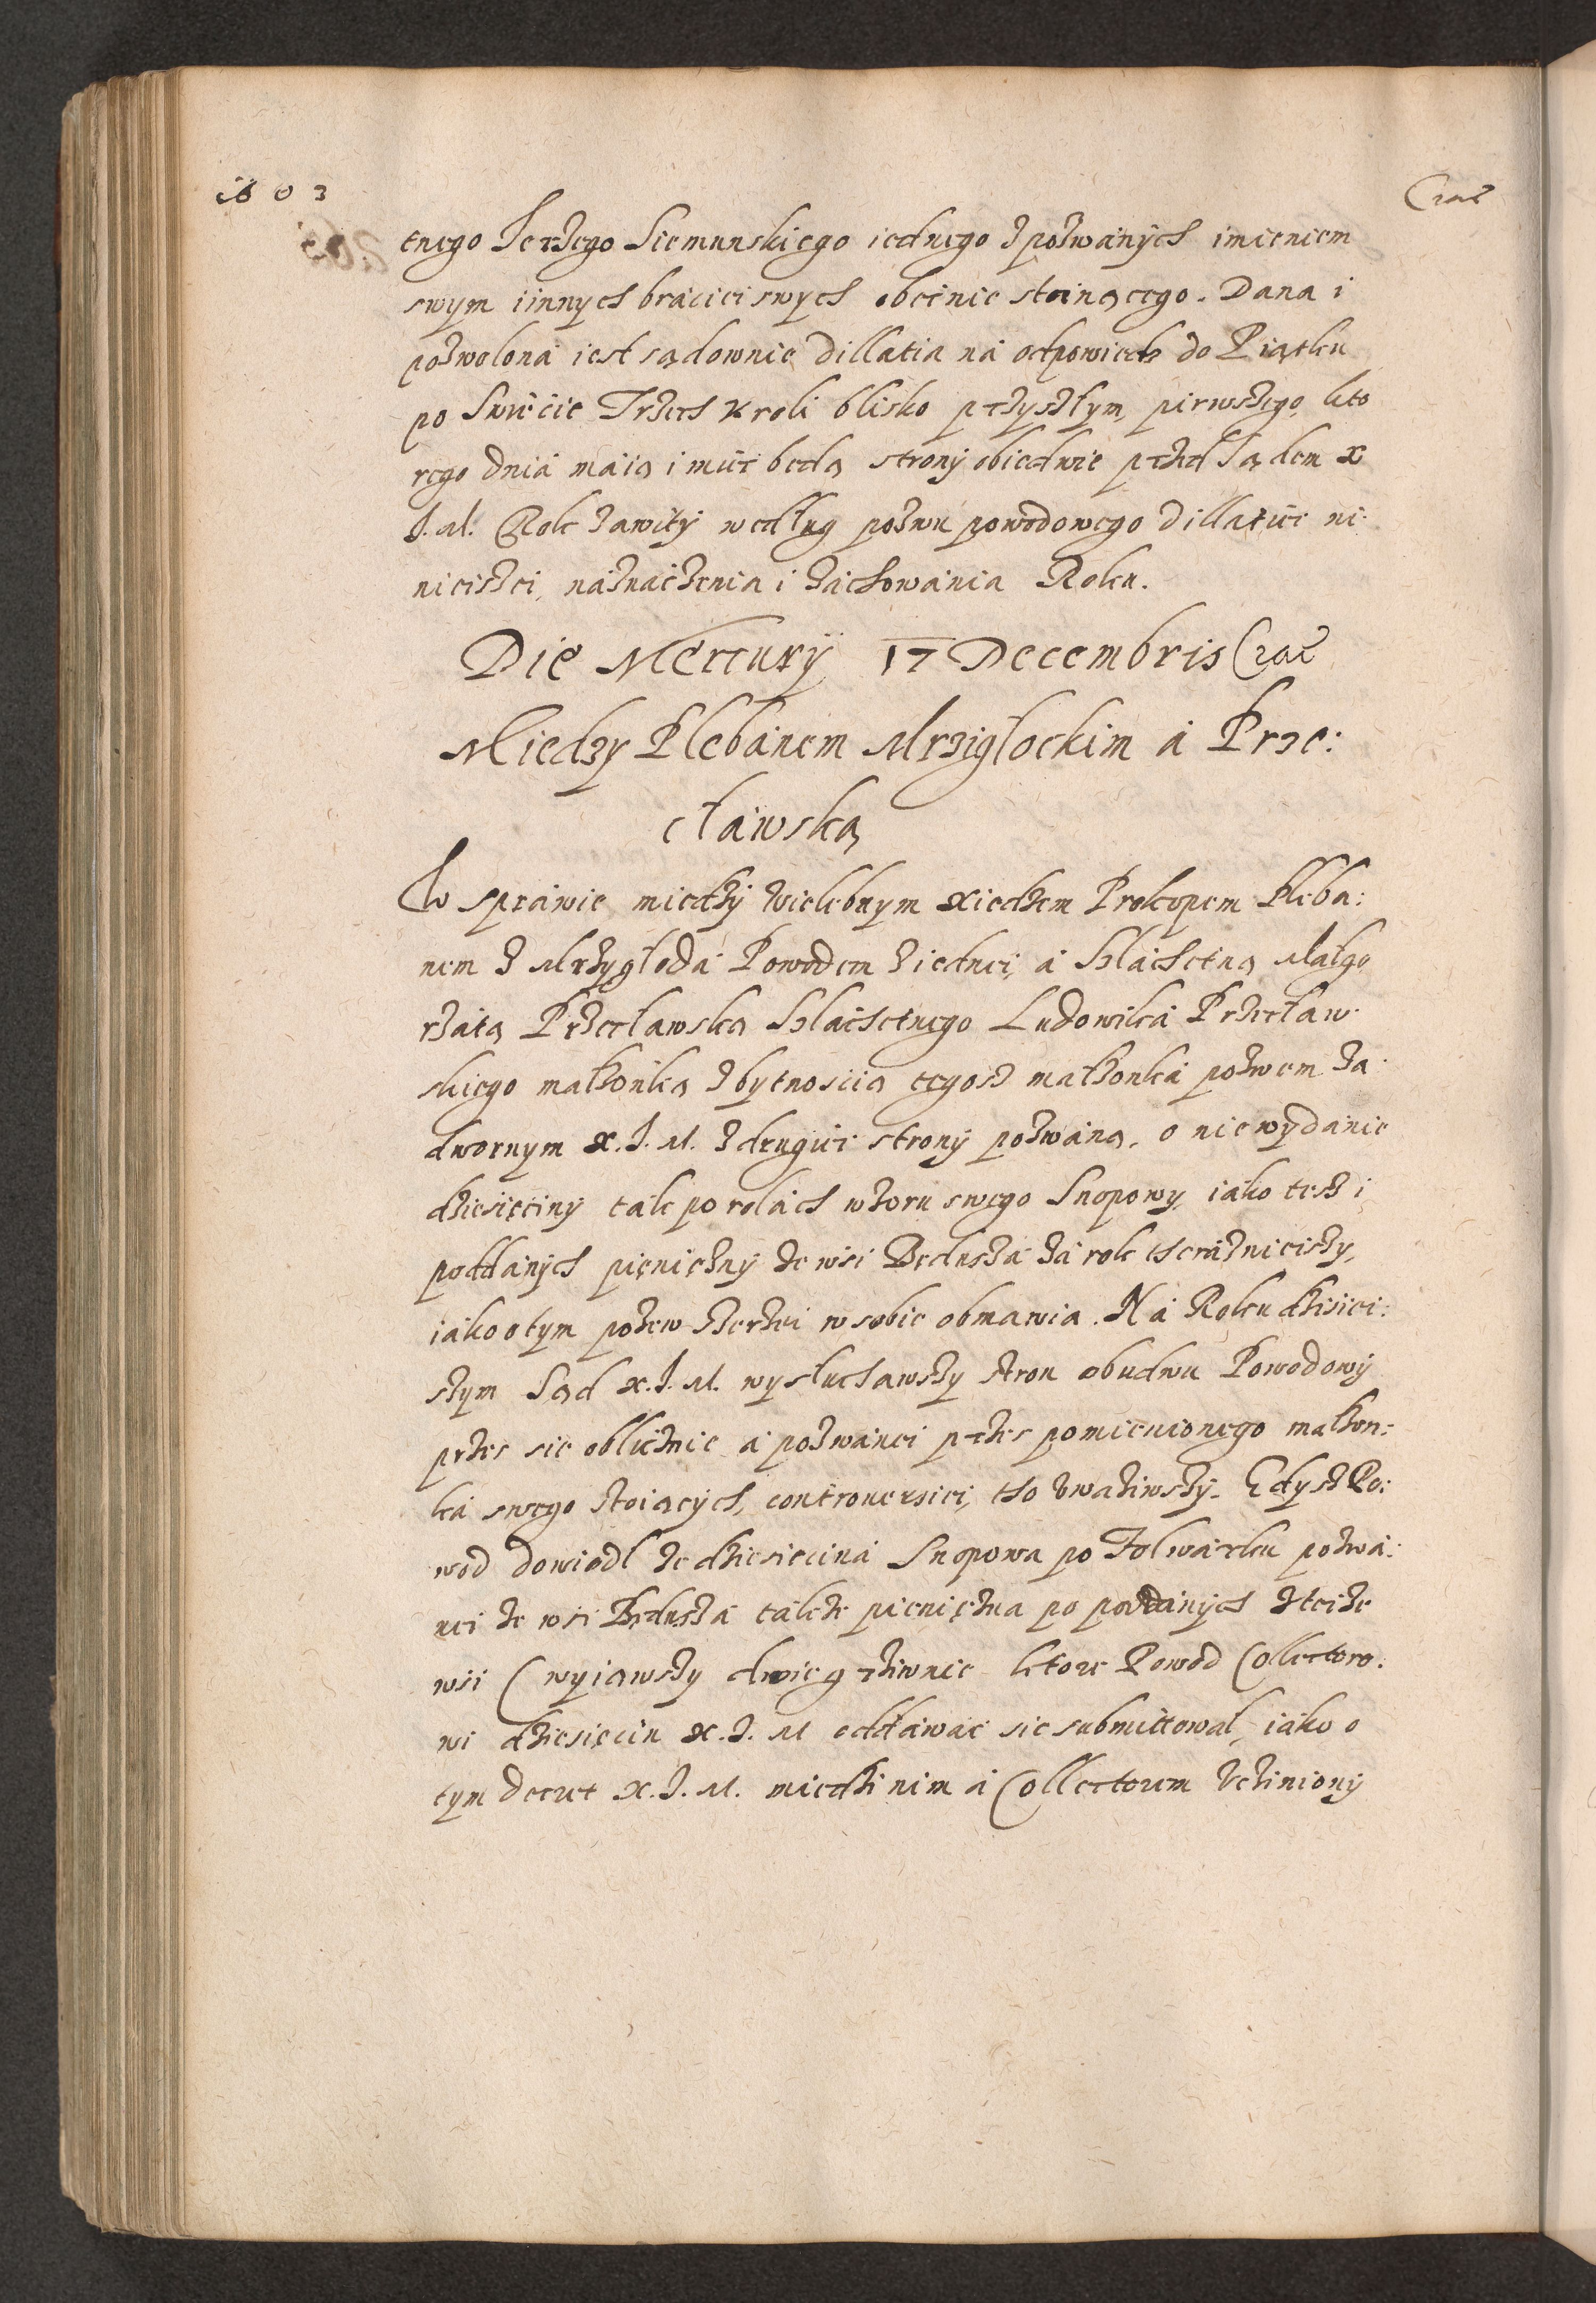 1603
Crac
tnego Jerzego Siemunskiego iednego z pozwánych imieniem
swym i innych bráciei swych obecnie stoiącego. Dana i
pozwolona iest sądownie dillatia ná odpowiedz do Piątku
po Swięcie Trzech Kroli blisko przyszłym, pierwszego, kto
rego dniá maią i miec będą strony obiedwie przed Sądem X
J. M. Rok zawity według pozwu powodowego dillatiei ni
nieiszei, náznáczenia i záchowánia Roku.
Die Mercurÿ 17 Decembris Crac
Miedzy Plebánem Mrzigłockim á Prze:
cłáwską
W spráwie miedzy Wielebnym Xiedzem Prokopem Pleba:
nem z Mrzygłodá Powodem z iednei, á Szláchetną Małgo
rzátą Przecławską Szláchetnego Ludowiká Przecław
skiego małżonką z bytnoscią tegosz małżonká pozwem za
dwornym X. J. M. z drugiei strony pozwáną, o nie wydanie
dziesięciny ták po rolách wzoru swego Snopowy, iako tesz i
poddánych pięniężny ze wsi Będuszá zá rok teráznieiszy,
iáko o tym pozew szerzei w sobie obmawia. Ná Roku dzisiei:
szym Sąd X. J. M. wysłuchawszy stron obudwu Powodowy
przes sie oblicznie á pozwánei przes pomienionego małżon:
ká swego stoiących, controuersiei, tho vwáziwszy. Gdysz Po:
wod dowiodl ze dziesieciná Snopowa po Folwárku pozwá:
nei ze wsi Będuszá tákze pięnięzna po poddánych z teize
wsi (wyiąwszy dwie grziwnie ktore Powod Collectoro:
wi dziesięcin X. J. M oddáwac sie submittował, iako o
tym decret X. J. M. miedzi nim á Collectorem vcziniony